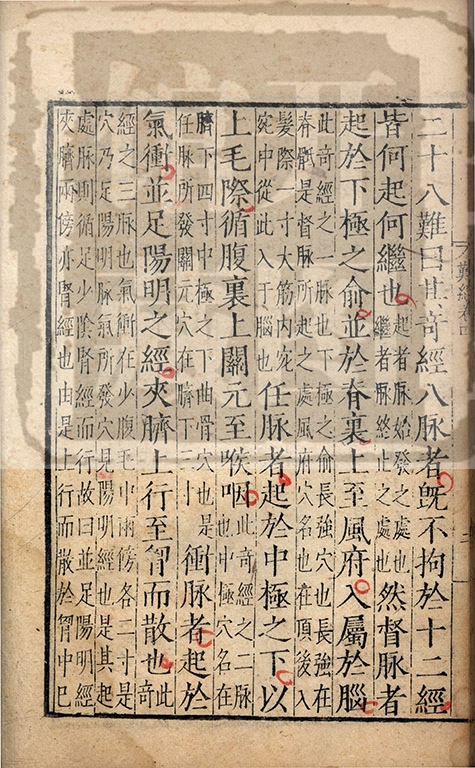 二十八難曰其奇經八脉者既不拘於十二經
皆何起何繼也起者脉始發之處也繼者脉終止之處也然督脉者
起於下極之俞並於脊裏上至風府入屬於腦
此奇經之一脉也下極之俞長強穴也長強在
脊骶是督脉所起之處風府穴名也在項後入
髮際一寸大筋内宛
宛中從此入于腦也任脉者起於中極之下以
上毛際循腹裏上關元至喉咽此奇經之二脉也中極穴名在
臍下四寸中極之下曲骨穴也是
任脉所發關元穴在臍下三寸衝脉者起於
氣衝並足陽明之經夾臍上行至胷而散也此奇
經之三脉也氣衝在少腹毛中兩傍各二寸是
穴乃足陽明脉氣所發穴見陽明經也是其起
處脉則循足少陰腎經而行故曰並足陽明經
夾臍兩傍亦腎經也由是上行而散於胷中已